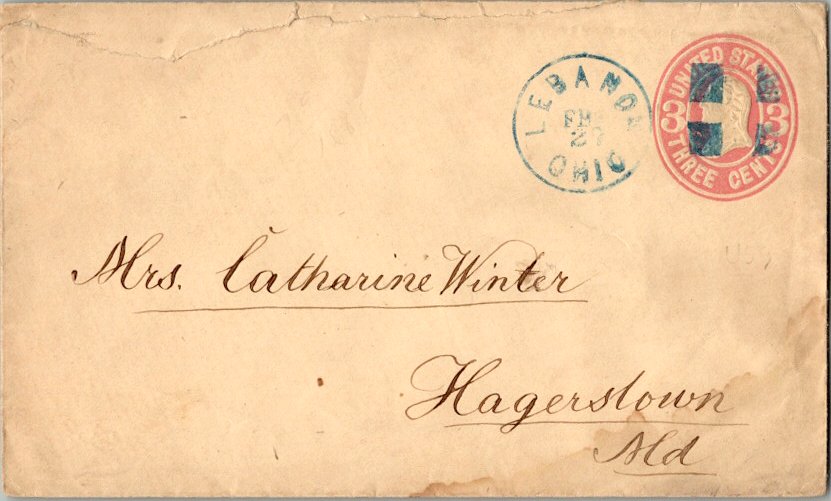 LEBANON
FEB
27
OHIO
UNITED STATES
3 3
THREE CENTS
Mrs. Catharine Winter
Hagerstown
Md